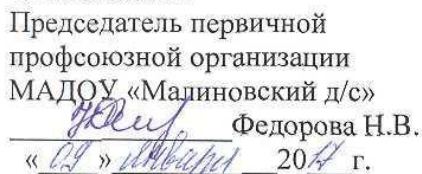 Председатель первичной
профсоюзной организации
МАДОУ «Малиновский д/с»
Федорова Н.В.
« 09 » января 2017 г.